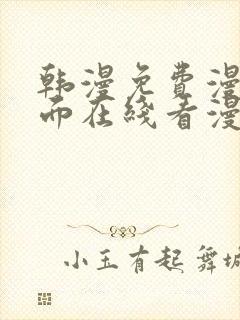 韩漫免费漫
而在线看漫
小玉有起舞